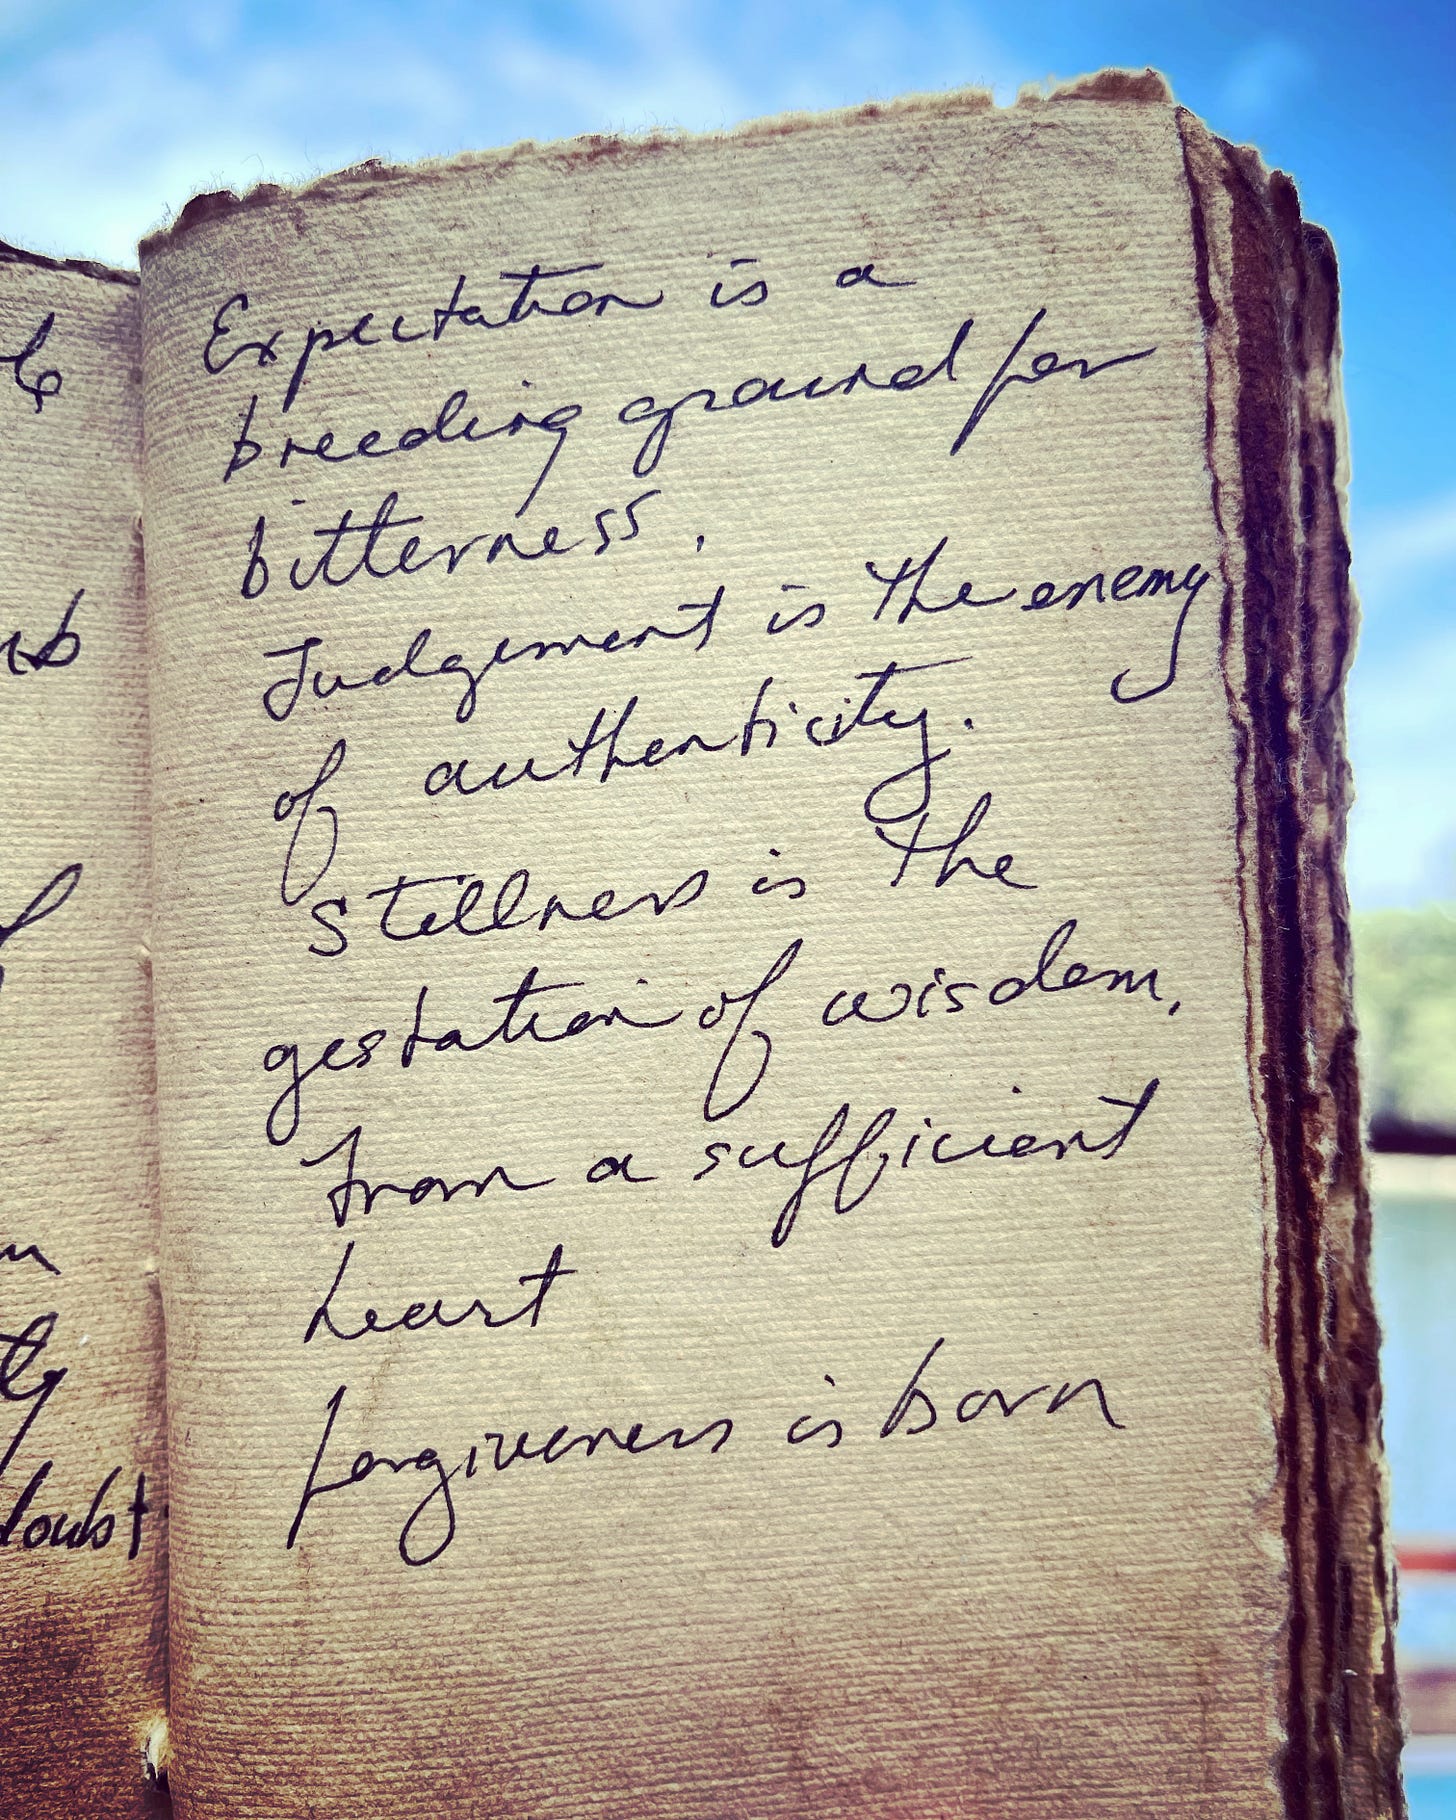 doubt
Expectation is a
breeding ground for
bitterness.
Judgement is the enemy
of authenticity.
Stillness is the
gestation of wisdom.
From a sufficient
heart
forgiveness is born